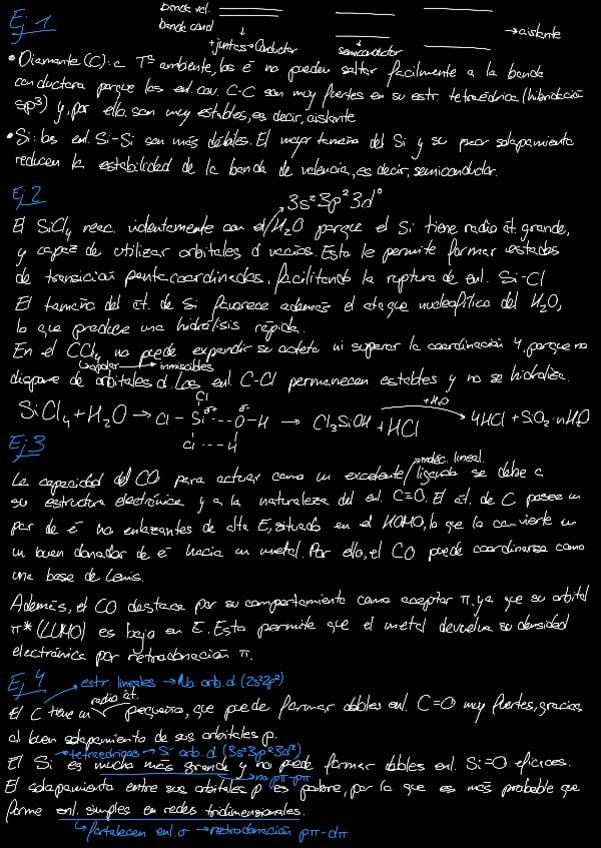 Ej 1
banda val.
banda cond
+juntas→Conductor
semiconductor
→aislante
• Diamante (C): a Tª ambiente, los é no pueden saltar fácilmente a la banda
conductora porque los enl. cov. C-C son muy fuertes en su estr. tetraédrica (hibridación
sp³) y, por ello, son muy estables, es decir, aislante
• Si: los enl. Si-Si son más débiles. El mayor tamaño del Si y su peor solapamiento
reducen la estabilidad de la banda de valencia, es decir, semiconductor.
Ej 2
3s² 3p² 3d⁰
El SiCl₄ reac. violentamente con el H₂O porque el Si tiene radio át. grande,
y capaz de utilizar orbitales d vacíos. Esto le permite formar estados
de transición pentacoordinados, facilitando la ruptura de enl. Si-Cl
El tamaño del át. de Si favorece además el ataque nucleofílico del H₂O,
lo que produce una hidrólisis rápida.
En el CCl₄ no puede expandir su octeto ni superar la coordinación 4, porque no
apolar → inmiscibles
dispone de orbitales d. Los enl. C-Cl permanecen estables y no se hidroliza.
SiCl₄ + H₂O → Cl - Si δ+ ··· O δ- - H → Cl₃SiOH + HCl +H₂O → 4HCl + SiO₂·nH₂O
Cl
Cl ··· H
Ej 3
→moléc. lineal
La capacidad del CO para actuar como un excelente ligando se debe a
su estructura electrónica y a la naturaleza del enl. C≡O. El át. de C posee un
par de é no enlazantes de alta E, situado en el HOMO, lo que lo convierte en
un buen donador de é hacia un metal. Por ello, el CO puede coordinarse como
una base de Lewis.
Además, el CO destaca por su comportamiento como aceptor π, ya que su orbital
π* (LUMO) es bajo en E. Esto permite que el metal devuelva su densidad
electrónica por retrodonación π.
Ej 4
estr lineales → No orb. d (2s²2p²)
radio át.
El C tiene un pequeño, que puede formar dobles enl. C=O muy fuertes, gracias
al buen solapamiento de sus orbitales p.
→tetraédricas → Sí orb. d (3s²3p²3d⁰)
El Si es mucho más grande y no puede formar dobles enl. Si=O eficaces.
→ no pπ-pπ
El solapamiento entre sus orbitales p es pobre, por lo que es más probable que
forme enl. simples en redes tridimensionales.
↳ fortalecen enl. σ → retrodonación pπ-dπ